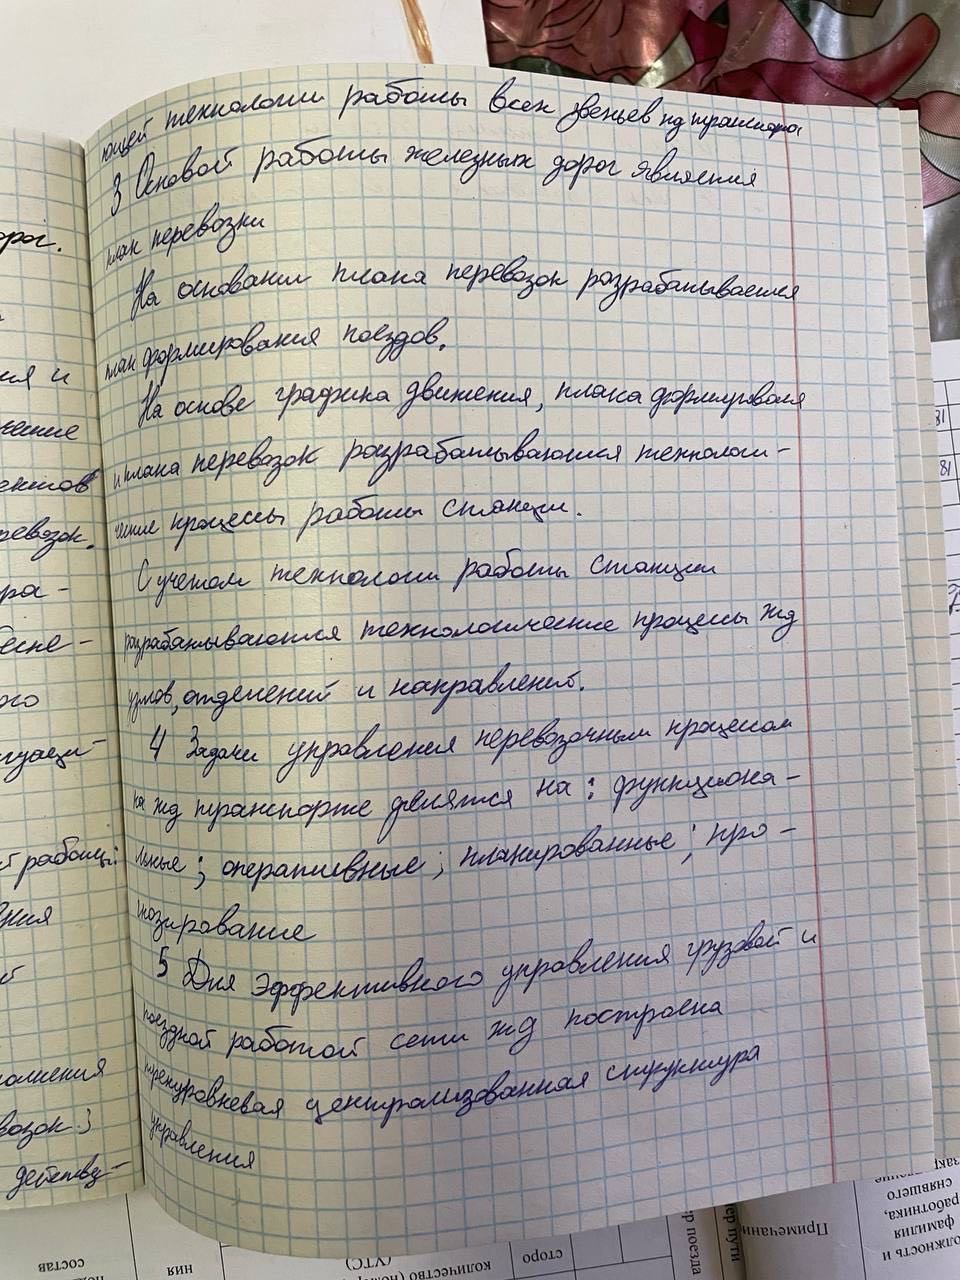 ющей технологии работы всех звеньев жд транспорта
3 Основой работы железных дорог является
план перевозки
На основании плана перевозок разрабатывается
план формирования поездов.
На основе графика движения, плана формирования
и плана перевозок разрабатываются технологи-
ческие процессы работы станции.
С учетом технологии работы станции
разрабатываются технологические процессы жд
узлов, отделений и направлений.
4 Задачи управления перевозочным процессом
на жд транспорте делятся на: функциона-
льные; оперативные; планированные; про-
гнозирование
5 Для эффективного управления грузовой и
поездной работой сети жд построена
трехуровневая централизованная структура
управления
орог.
ния и
чение
ентов
ревозок.
ра-
еспе-
ого
й работы:
ния
полнения
возок;
действу-
81
81
Примечани
должность и
фамилия
работника,
снявшего
ер пути
ер поезда
сторо
(УТС)
ния
состав